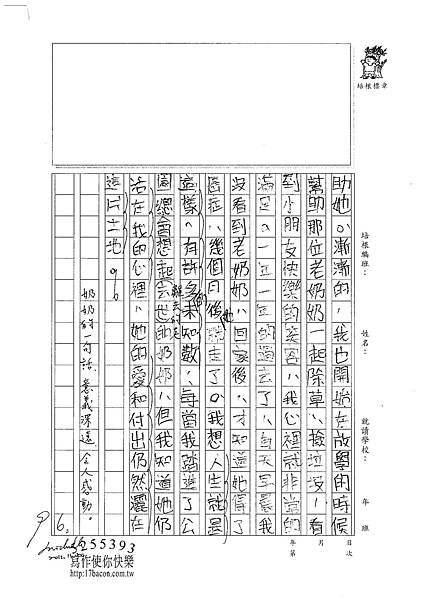 培根標章
培根編班：
姓名：
就讀學校：
年 班
年 月 日
第 次
助她。漸漸的，我也開始在放學的時候
幫助那位老奶奶一起除草、撿垃圾，看
到小朋友快樂的笑容，我心裡就非常的
滿足。一年一年的過去了，每天早晨我
沒看到老奶奶，回家後，才知道她得了
癌症，幾個月後她就走了。我想人生就是
這樣。有許多的未知數，每當我踏進了公
園總會想起去世的奶奶，但我知道她仍
活在我的心裡，她的愛和付出仍然灑在
這片土地。
奶奶的一句話，意義深遠，令人感動。
96
255393
寫作使你快樂
http://www.17bacon.com.tw